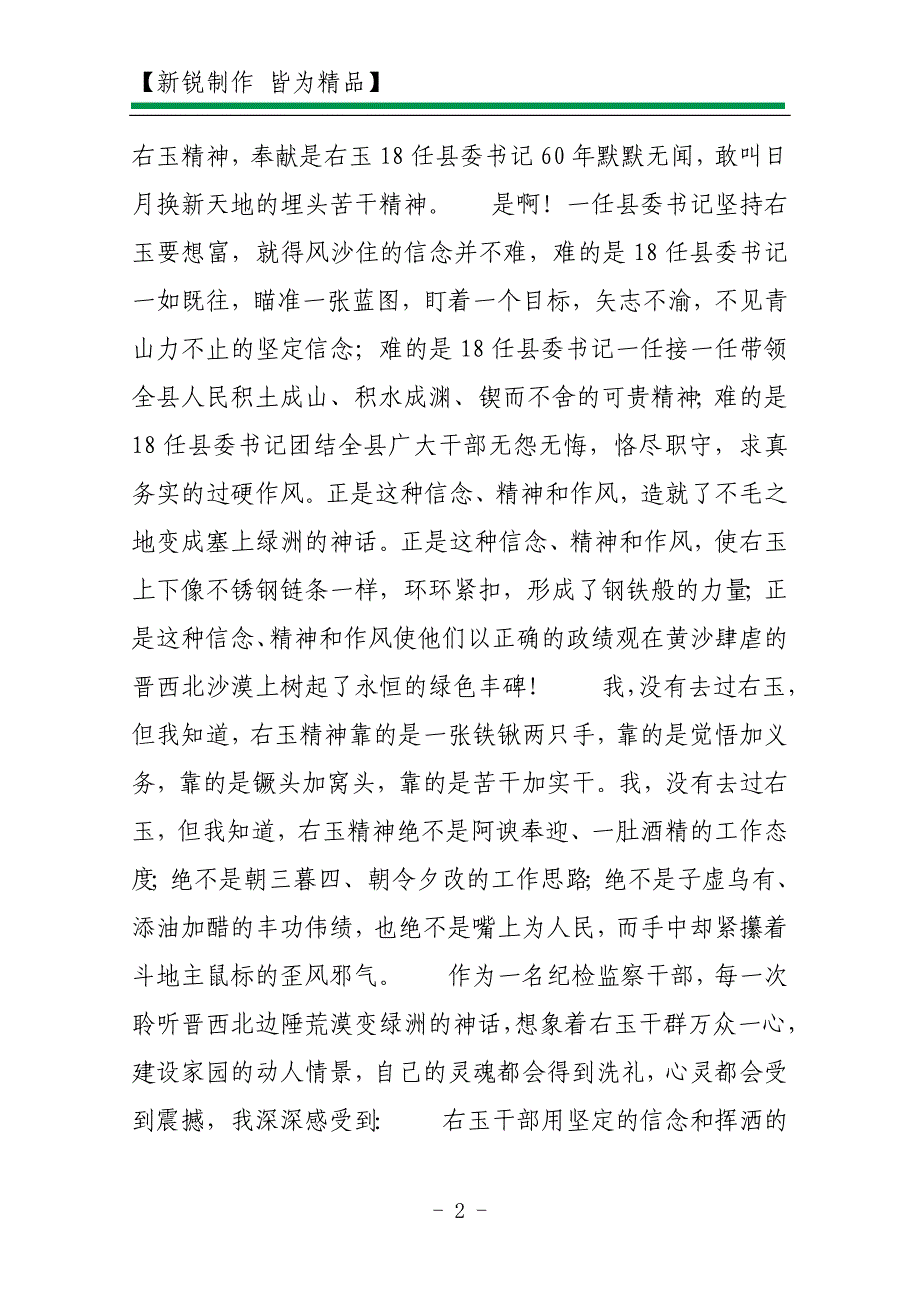 【新锐制作 皆为精品】
右玉精神，奉献是右玉18任县委书记60年默默无闻，敢叫日
月换新天地的埋头苦干精神。 是啊！一任县委书记坚持右
玉要想富，就得风沙住的信念并不难，难的是18任县委书记
一如既往，瞄准一张蓝图，盯着一个目标，矢志不渝，不见青
山力不止的坚定信念；难的是18任县委书记一任接一任带领
全县人民积土成山、积水成渊、锲而不舍的可贵精神；难的是
18任县委书记团结全县广大干部无怨无悔，恪尽职守，求真
务实的过硬作风。正是这种信念、精神和作风，造就了不毛之
地变成塞上绿洲的神话。正是这种信念、精神和作风，使右玉
上下像不锈钢链条一样，环环紧扣，形成了钢铁般的力量；正
是这种信念、精神和作风使他们以正确的政绩观在黄沙肆虐的
晋西北沙漠上树起了永恒的绿色丰碑！ 我，没有去过右玉，
但我知道，右玉精神靠的是一张铁锹两只手，靠的是觉悟加义
务，靠的是镢头加窝头，靠的是苦干加实干。我，没有去过右
玉，但我知道，右玉精神绝不是阿谀奉迎、一肚酒精的工作态
度；绝不是朝三暮四、朝令夕改的工作思路；绝不是子虚乌有、
添油加醋的丰功伟绩，也绝不是嘴上为人民，而手中却紧攥着
斗地主鼠标的歪风邪气。 作为一名纪检监察干部，每一次
聆听晋西北边陲荒漠变绿洲的神话，想象着右玉干群万众一心，
建设家园的动人情景，自己的灵魂都会得到洗礼，心灵都会受
到震撼，我深深感受到： 右玉干部用坚定的信念和挥洒的
- 2 -